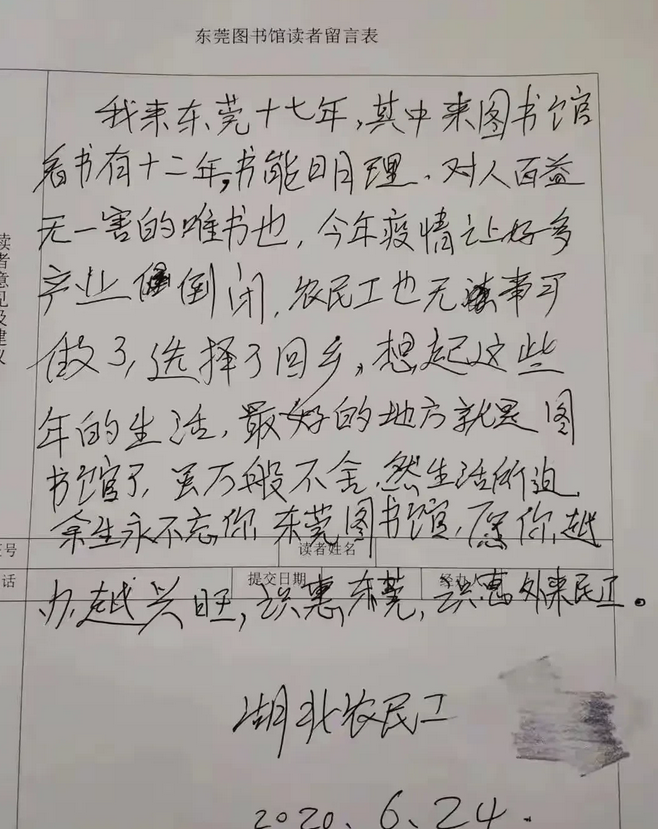 东莞图书馆读者留言表
我来东莞十七年,其中来图书馆
看书有十二年,书能明理、对人百益
无一害的唯书也,今年疫情让好多
产业倒闭,农民工也无事可
做了,选择了回乡,想起这些
年的生活,最好的地方就是图
书馆了,虽万般不舍,然生活所迫,
余生永不忘你,东莞图书馆,愿你越
办越兴旺,识惠东莞,识惠外来民工。
读者意见及建议
证号
读者姓名
话
提交日期
经办人
湖北农民工
2020、6、24.